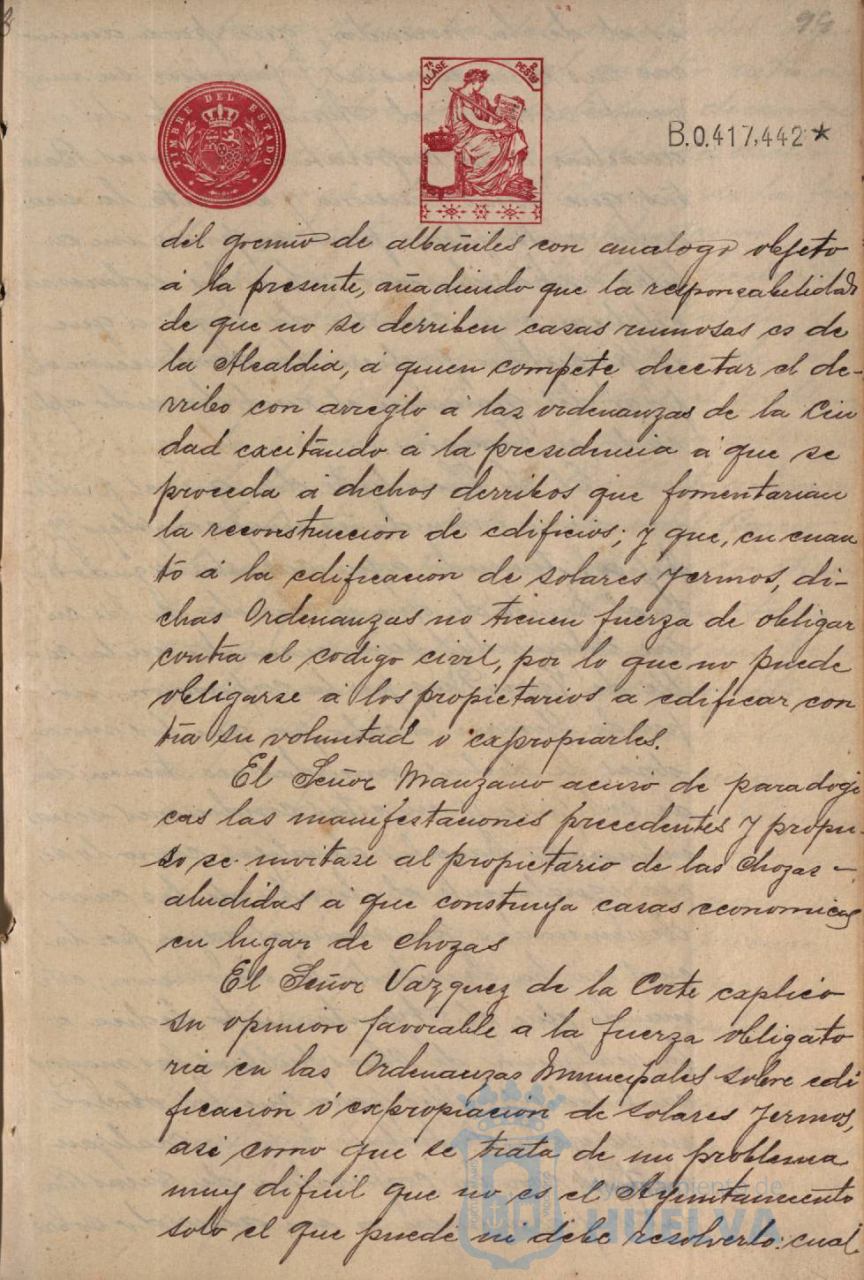 94
TIMBRE DEL ESTADO
7ª CLASE 2 PESTAS
B.0.417,442 ★
del gremio de albañiles con analogo objeto
á la presente, añadiendo que la responsabilidad
de que no se derriben casas ruinosas es de
la Alcaldia, á quien compete decretar el de-
rribo con arreglo á las ordenanzas de la Ciu
dad excitando á la presidencia á que se
proceda á dichos derribos que fomentarian
la reconstrucción de edificios; y que, en cuan
to á la edificación de solares yermos, di-
chas Ordenanzas no tienen fuerza de obligar
contra el codigo civil, por lo que no puede
obligarse á los propietarios á edificar con
tra su voluntad o expropiarles.
El Señor Manzano acusó de paradogi
cas las manifestaciones precedentes y propu-
so se invitase al propietario de las chozas -
aludidas á que construya casas economicas
en lugar de chozas
El Señor Vazquez de la Corte explicó
su opinión favorable á la fuerza obligato
ria en las Ordenanzas Municipales sobre edi
ficación ó expropiación de solares yermos,
asi como que se trata de un problema
muy dificil que no es el Ayuntamiento
solo el que puede ni debe resolverlo: cual
Ayuntamiento de
HUELVA